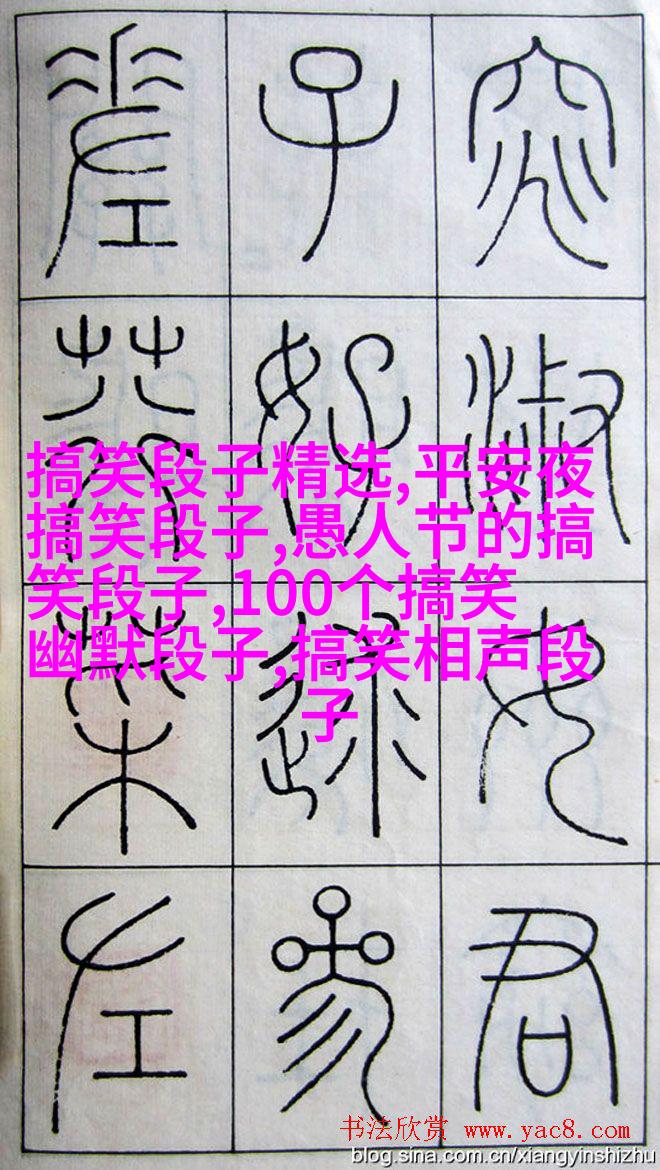 窕淑女君
子好逑參
差荇菜左
搞笑段子精选,平安夜
搞笑段子,愚人节的搞
笑段子,100个搞笑
幽默段子,搞笑相声段
子
书法欣赏 www.yac8.com
blog.sina.com.cn/xiangyinshizhu